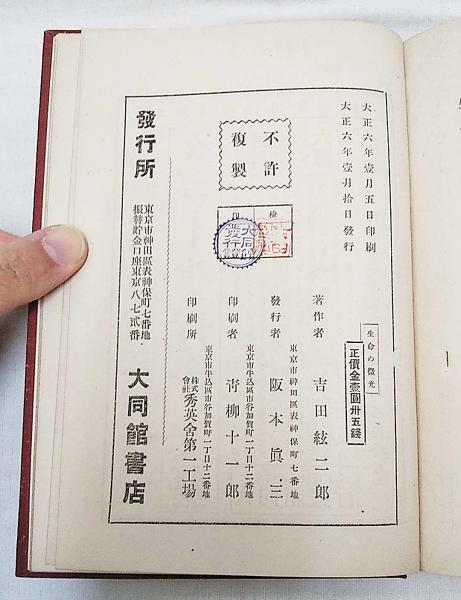 大正六年壹月五日印刷
大正六年壹月拾日發行
生命の微光
正價金壹圓卅五錢
不許
複製
檢
印
大同館
發行證
著作者 吉田絃二郎
東京市神田區表神保町七番地
發行者 阪本眞三
東京市牛込區市谷加賀町一丁目十二番地
印刷者 靑柳十一郎
東京市牛込區市谷加賀町一丁目十二番地
印刷所 株式會社 秀英舍第一工場
發行所
東京市神田區表神保町七番地・
振替貯金口座東京八七貳番
大同館書店